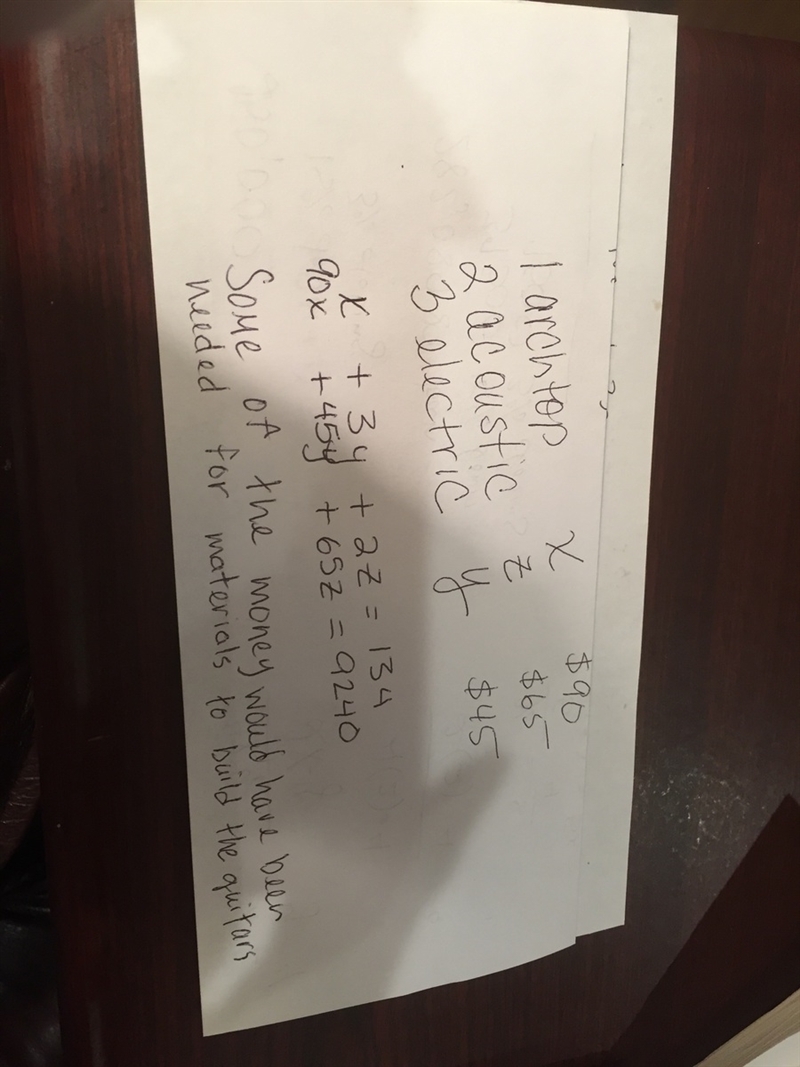 1 archtop x $90
2 acoustic z $65
3 electric y $45
x + 3y + 2z = 134
90x + 45y + 65z = 9240
Some of the money would have been
needed for materials to build the guitars